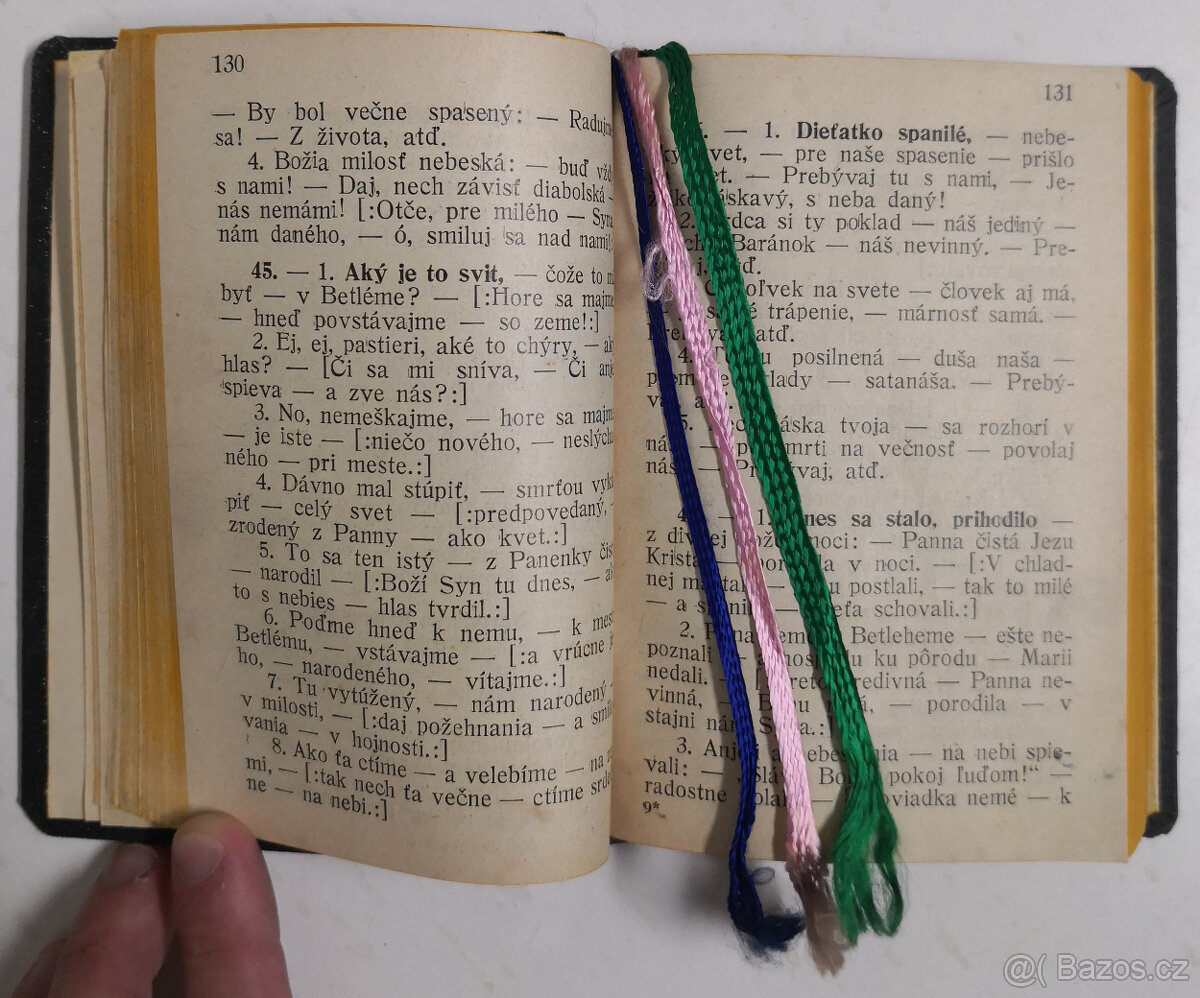 130
— By bol večne spasený: — Radujme
sa! — Z života, atď.
4. Božia milosť nebeská: — buď vžd
s nami! — Daj, nech závisť diabolská —
nás nemámi! [:Otče, pre milého — Syna
nám daného, — ó, smiluj sa nad nami!
45. — 1. Aký je to svit, — čože to m
byť — v Betléme? — [:Hore sa majme
— hneď povstávajme — so zeme!:]
2. Ej, ej, pastieri, aké to chýry, — ak
hlas? — [Či sa mi sníva, — Či anj
spieva — a zve nás?:]
3. No, nemeškajme, — hore sa majme
— je iste — [:niečo nového, — neslých
ného — pri meste.:]
4. Dávno mal stúpiť, — smrťou vyku
piť — celý svet — [:predpovedaný, —
zrodený z Panny — ako kvet.:]
5. To sa ten istý — z Panenky čis
— narodil — [:Boží Syn tu dnes, — ak
to s nebies — hlas tvrdil.:]
6. Poďme hneď k nemu, — k mest
Betlému, — vstávajme — [:a vrúcne je
ho, — narodeného, — vítajme.:]
7. Tu vytúžený, — nám narodený
v milosti, — [:daj požehnania — a smil
vania — v hojnosti.:]
8. Ako ťa ctíme — a velebíme — na ze
mi, — [:tak nech ťa večne — ctíme srde
ne — na nebi.:]
131
— 1. Dieťatko spanilé, — nebe-
ký vet, — pre naše spasenie — prišlo
et. — Prebývaj tu s nami, — Je-
áskavý, s neba daný!
2. rdca si ty poklad — náš jediný —
Baránok — náš nevinný. — Pre-
j, atď.
oľvek na svete — človek aj má,
é trápenie, — márnosť samá. —
atď.
4. u posilnená — duša naša —
klady — satanáša. — Prebý-
5. áska tvoja — sa rozhorí v
mrti na večnosť — povolaj
nás — Prebývaj, atď.
— 1. nes sa stalo, prihodilo —
z moci: — Panna čistá Jezu
Krista v noci. — [:V chlad-
nej u postlali, — tak to milé
— a eťa schovali.:]
2. Betleheme — ešte ne-
poznali — u ku pôrodu — Marii
nedali. — redivná — Panna ne-
vinná, — porodila — v
stajni :]
3. Anj nia — na nebi spie-
vali: — pokoj ľuďom!“ —
radostne oviadka nemé — k
9*
@( Bazos.cz